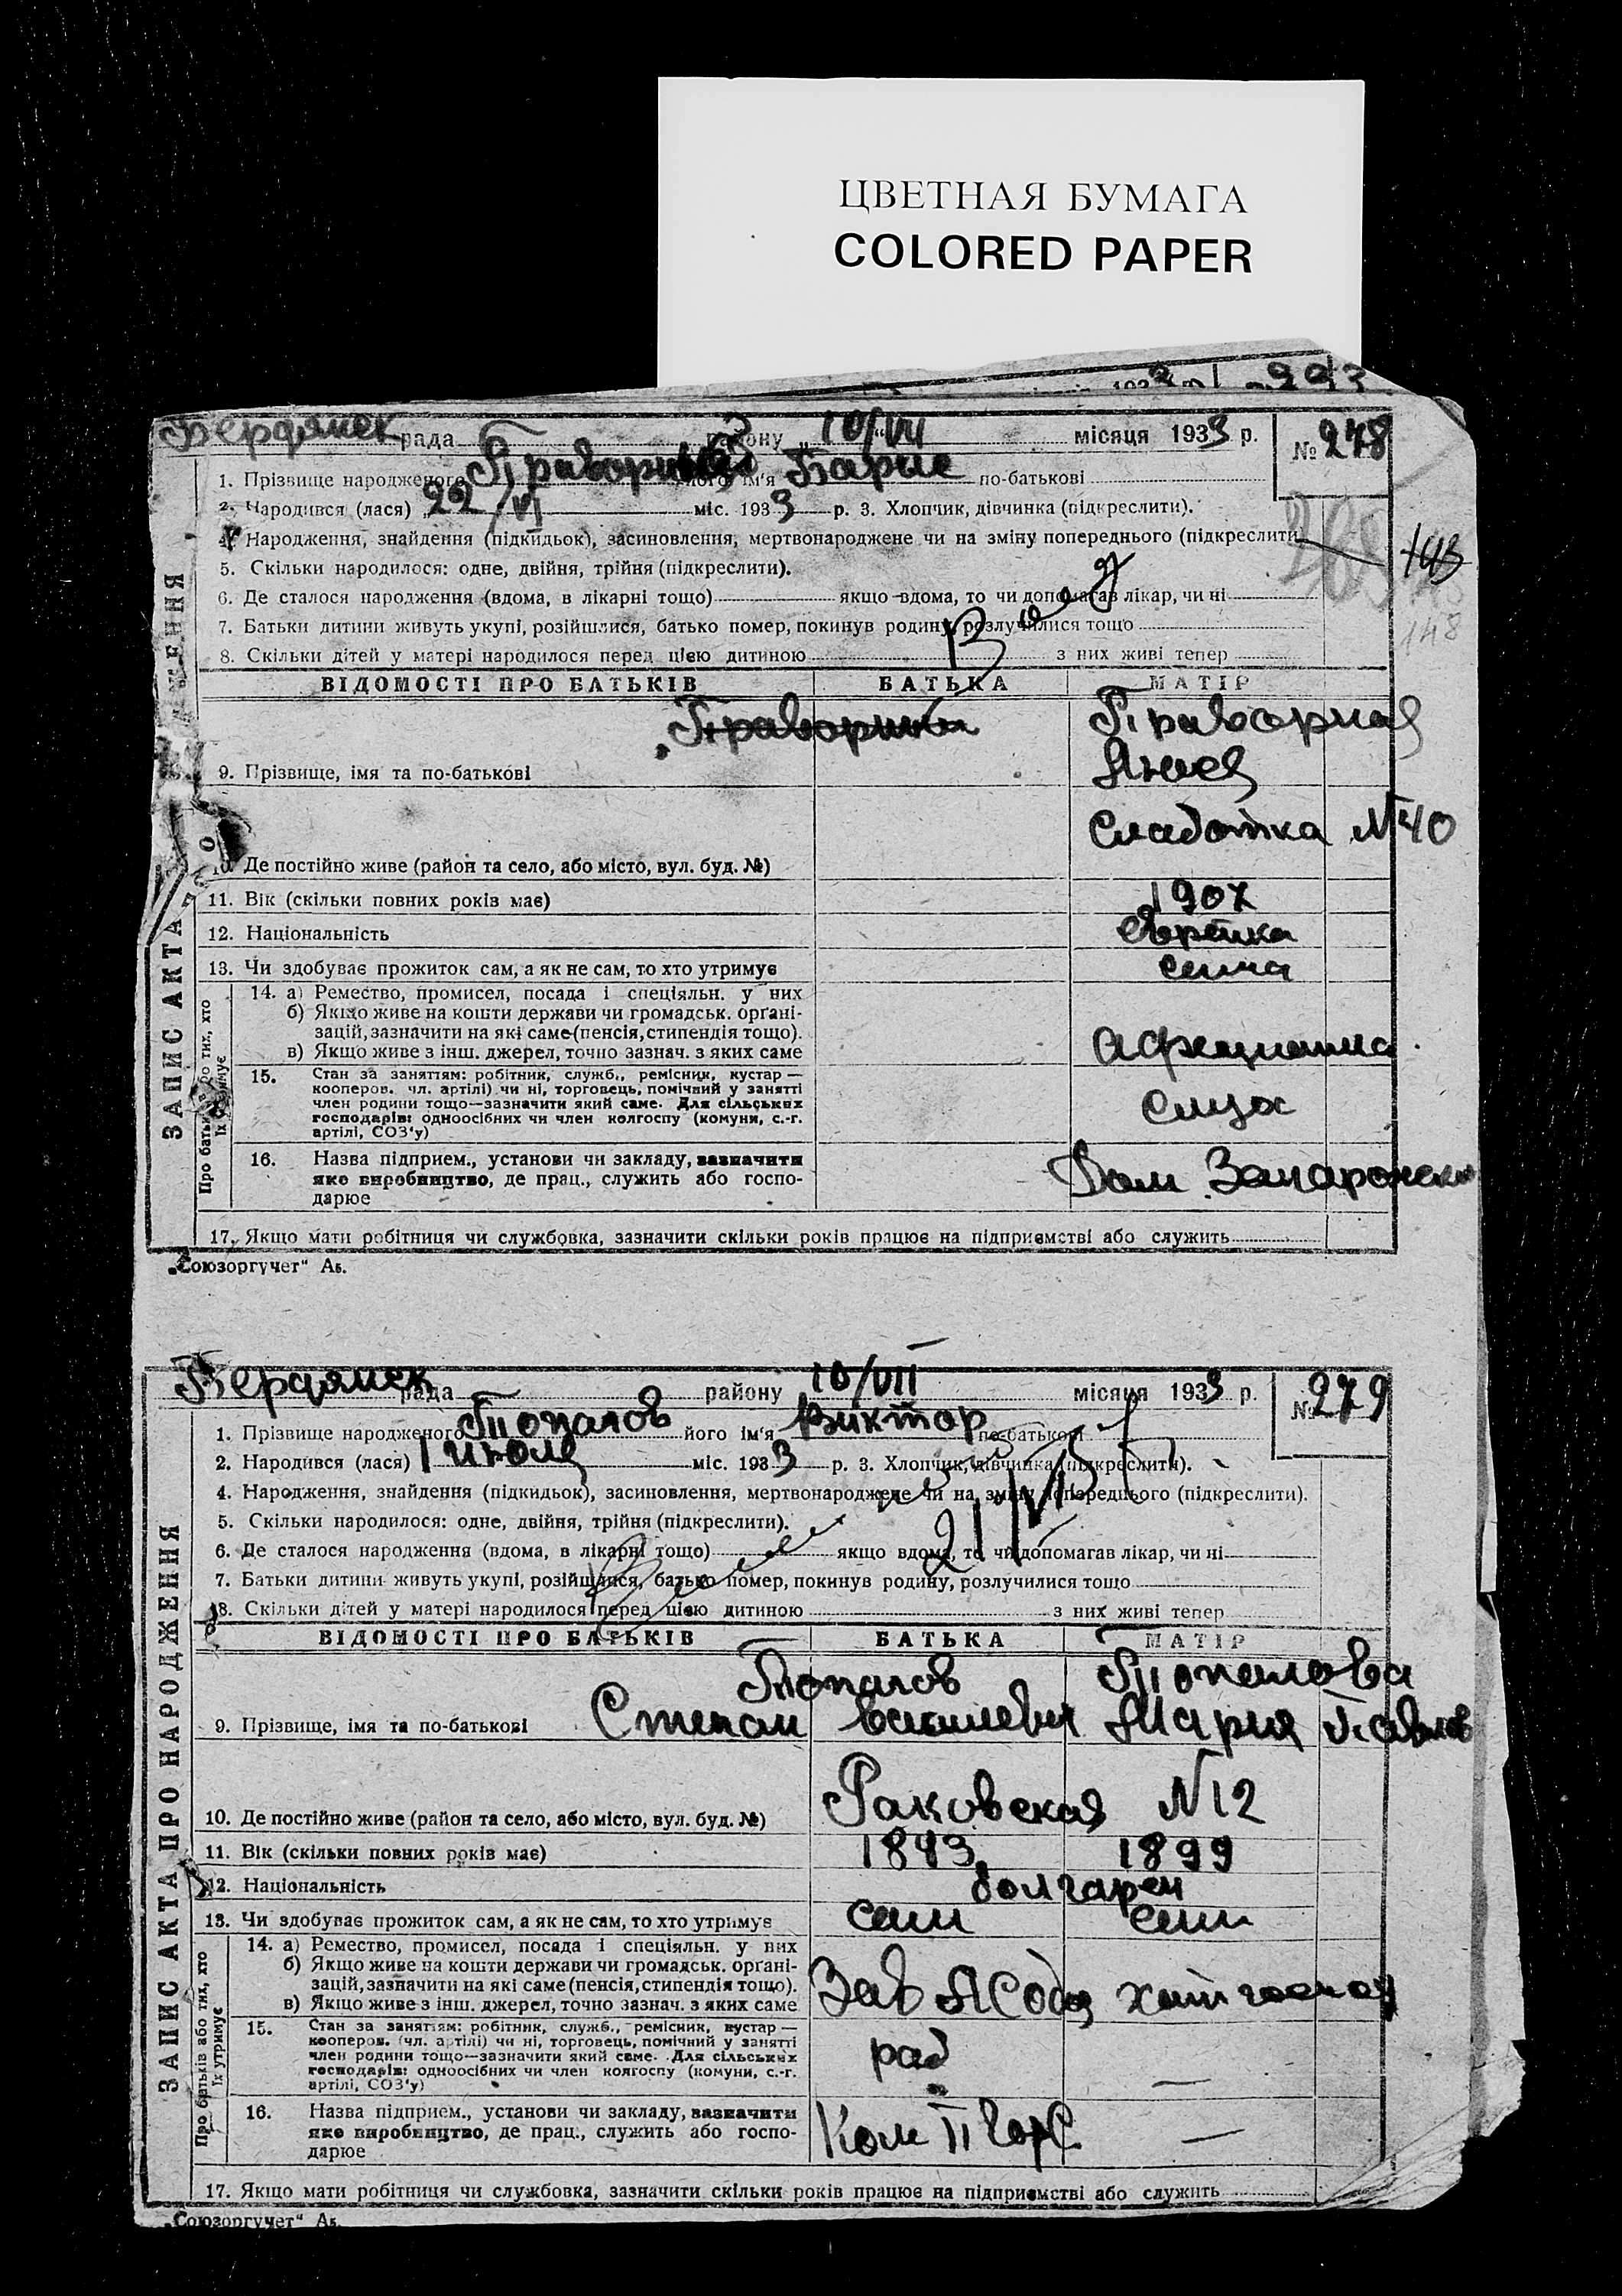 ЦВЕТНАЯ БУМАГА
COLORED PAPER
293
Бердянск рада району „10/VII“ місяця 1933 р. № 278
1. Прізвище народженого його ім'я Барис по-батькові
2. Народився (лася) „22/VI міс. 1933 р. 3. Хлопчик, дівчинка (підкреслити).
4. Народження, знайдення (підкидьок), засиновлення, мертвонароджене чи на зміну попереднього (підкреслити
143
5. Скільки народилося: одне, двійня, трійня (підкреслити).
6. Де сталося народження (вдома, в лікарні тощо) якщо вдома, то чи допомагав лікар, чи ні
7. Батьки дитини живуть укупі, розійшлися, батько помер, покинув родину, розлучилися тощо
148
8. Скільки дітей у матері народилося перед цією дитиною з них живі тепер
ВІДОМОСТІ ПРО БАТЬКІВ БАТЬКА МАТІР
Праворная
9. Прізвище, імя та по-батькові
Слабодка №40
10. Де постійно живе (район та село, або місто, вул. буд. №)
11. Вік (скільки повних років має) 1907
12. Національність Еврейка
13. Чи здобуває прожиток сам, а як не сам, то хто утримує сама
14. а) Ремество, промисел, посада і спеціяльн. у них
б) Якщо живе на кошти держави чи громадськ. орґані-
зацій, зазначити на які саме (пенсія, стипендія тощо).
в) Якщо живе з інш. джерел, точно зазнач. з яких саме
15. Стан за заняттям: робітник, служб., ремісник, кустар —
кооперов. чл. артілі) чи ні, торговець, помічний у занятті
член родини тощо—зазначити який саме. Для сільських
господарів: одноосібних чи член колгоспу (комуни, с.-г.
артілі, СОЗ'у)
16. Назва підприєм., установи чи закладу, зазначити
яке виробництво, де прац., служить або госпо-
дарює
Дом
17. Якщо мати робітниця чи службовка, зазначити скільки років працює на підприємстві або служить
„Союзоргучет“ Аб.
ЗАПИС АКТА
Бердянск рада району 10/VII місяця 1933 р. № 279
1. Прізвище народженого Топалов його ім'я Виктор по-батькові
2. Народився (лася) 1 июля міс. 1933 р. 3. Хлопчик, дівчинка (підкреслити).
4. Народження, знайдення (підкидьок), засиновлення, мертвонароджене чи на зміну попереднього (підкреслити).
5. Скільки народилося: одне, двійня, трійня (підкреслити).
6. Де сталося народження (вдома, в лікарні тощо) якщо вдома, то чи допомагав лікар, чи ні
7. Батьки дитини живуть укупі, розійшлися, батько помер, покинув родину, розлучилися тощо
8. Скільки дітей у матері народилося перед цією дитиною з них живі тепер
ВІДОМОСТІ ПРО БАТЬКІВ БАТЬКА МАТІР
Топалов Топалова
9. Прізвище, імя та по-батькові Степан Василевич Мария Павлов
10. Де постійно живе (район та село, або місто, вул. буд. №) Раковская №12
11. Вік (скільки повних років має) 1893 1899
12. Національність болгарен
13. Чи здобуває прожиток сам, а як не сам, то хто утримує сам сам
14. а) Ремество, промисел, посада і спеціяльн. у них
б) Якщо живе на кошти держави чи громадськ. орґані-
зацій, зазначити на які саме (пенсія, стипендія тощо).
в) Якщо живе з інш. джерел, точно зазнач. з яких саме
Зав
15. Стан за заняттям: робітник, служб., ремісник, кустар —
кооперов. (чл. артілі) чи ні, торговець, помічний у занятті
член родини тощо—зазначити який саме. Для сільських
господарів: одноосібних чи член колгоспу (комуни, с.-г.
артілі, СОЗ'у)
раб —
16. Назва підприєм., установи чи закладу, зазначити
яке виробництво, де прац., служить або госпо-
дарює
Ком —
17. Якщо мати робітниця чи службовка, зазначити скільки років працює на підприємстві або служить
„Союзоргучет“ Аб.
ЗАПИС АКТА ПРО НАРОДЖЕННЯ
Про батьків або тих, хто
їх утримує